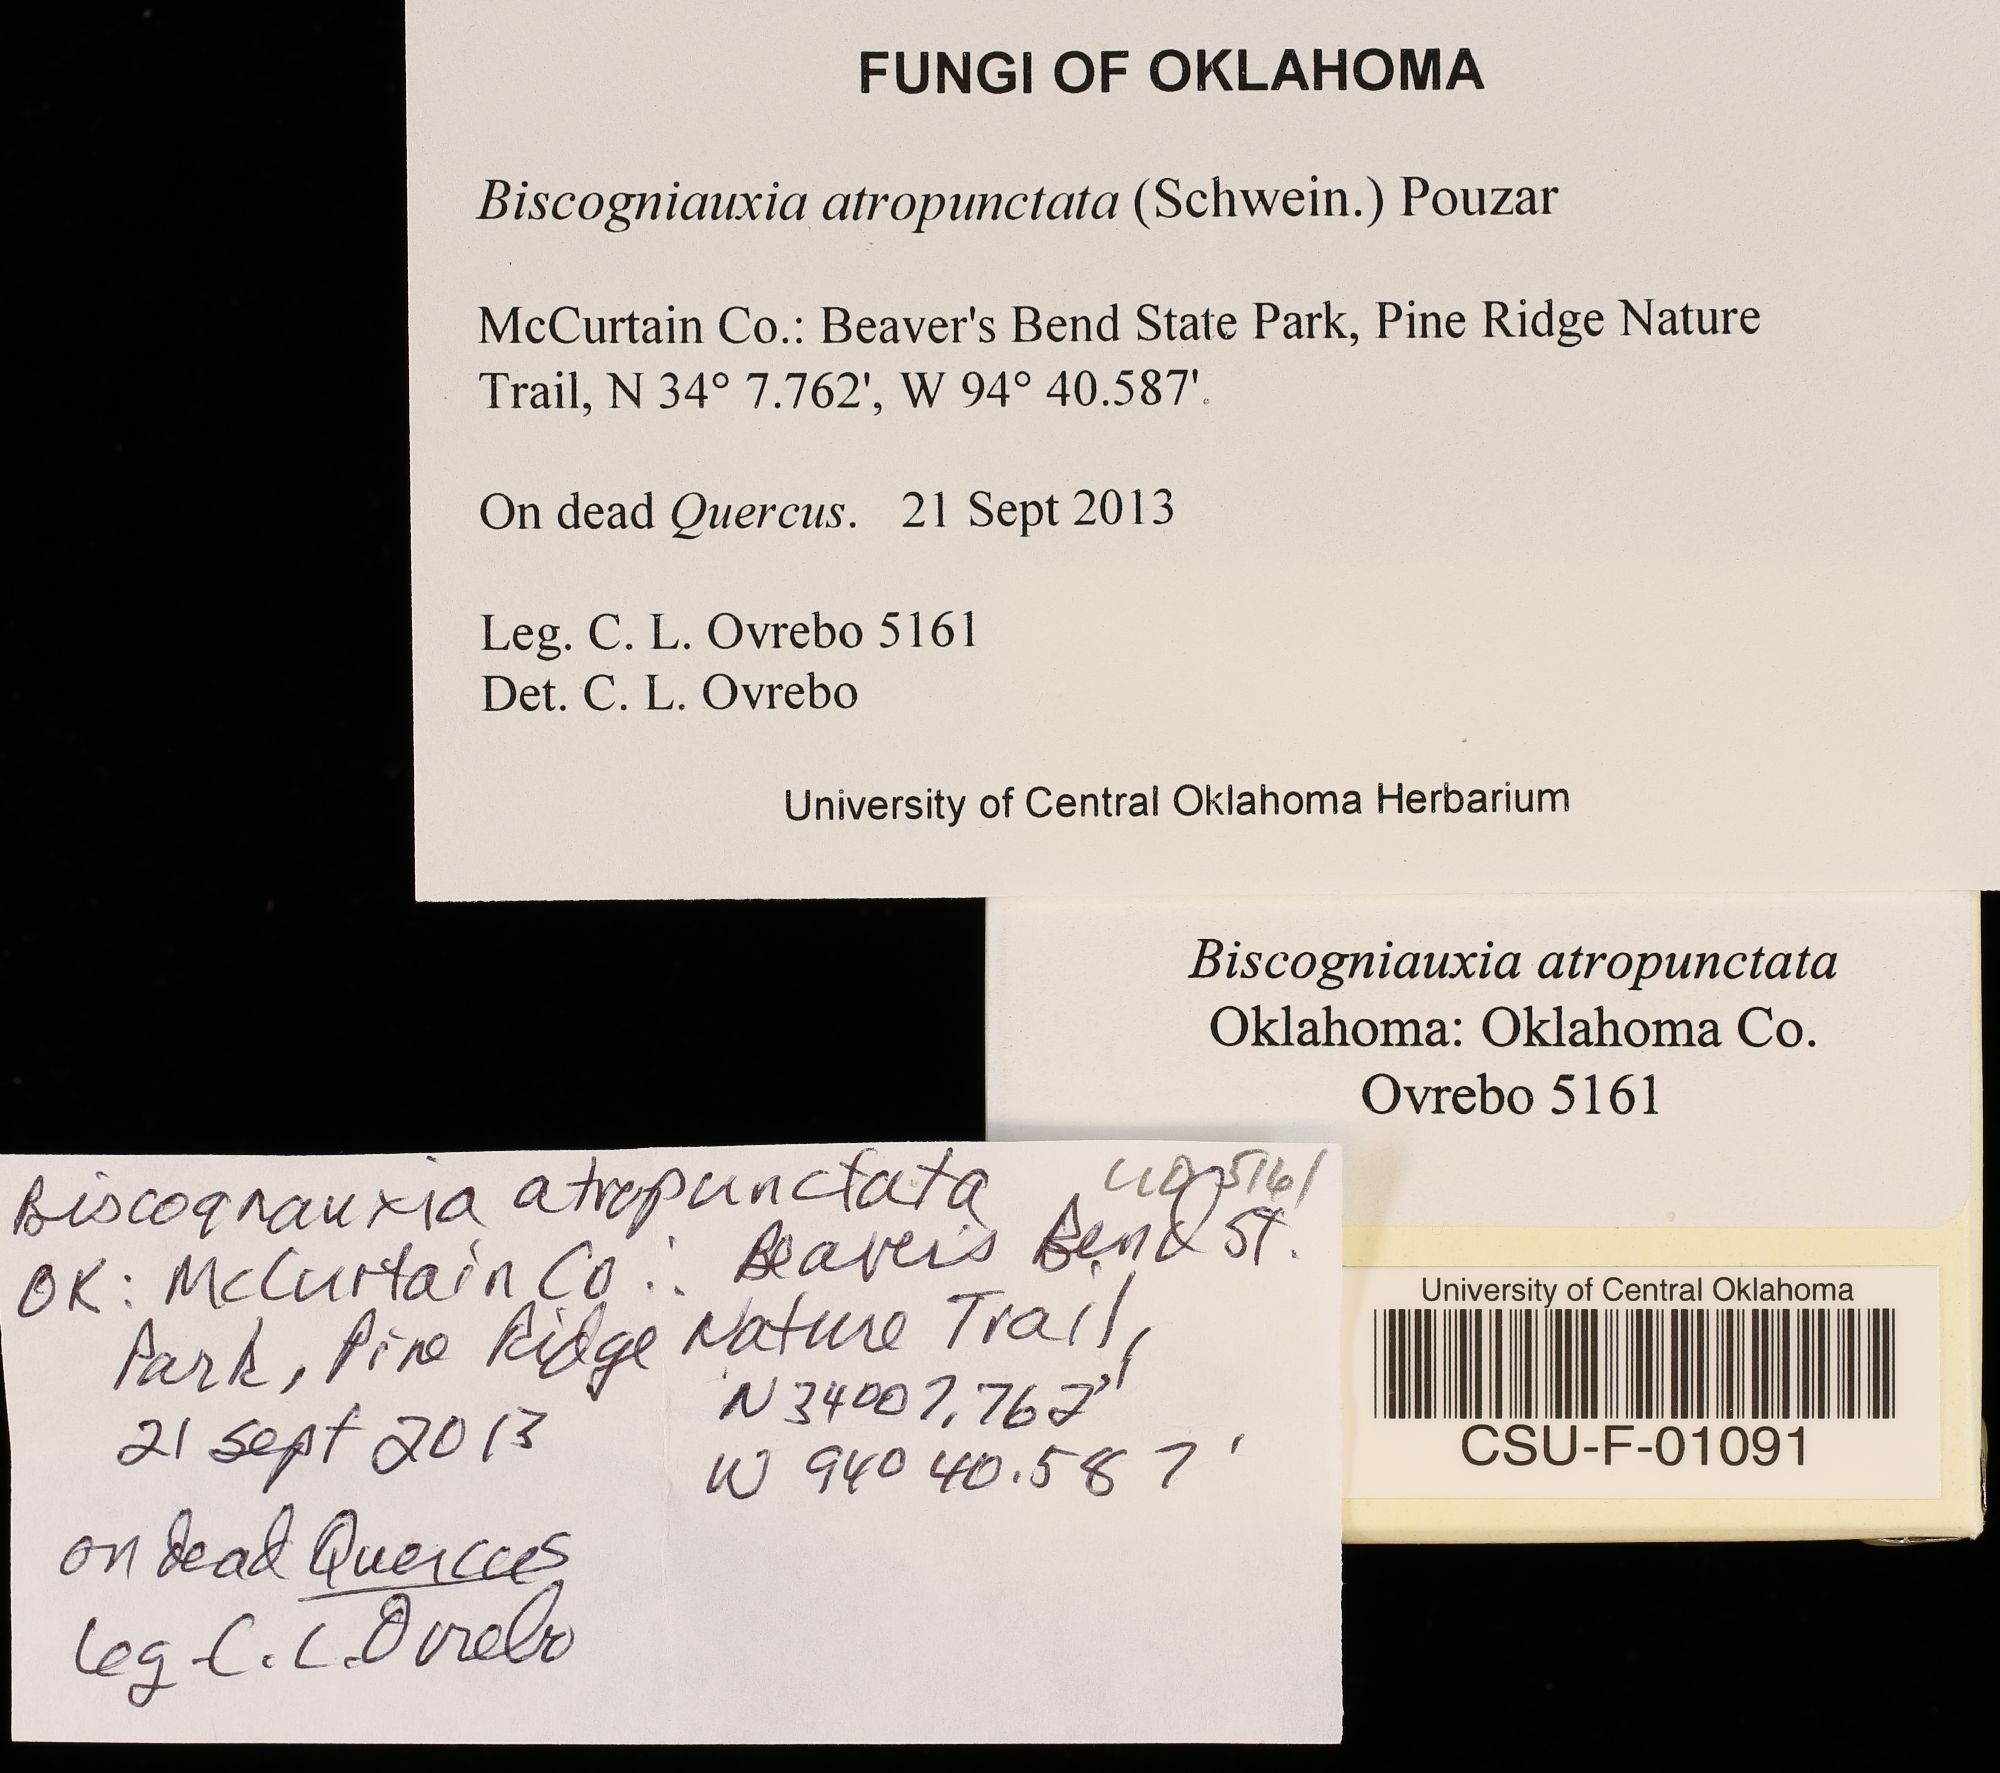 FUNGI OF OKLAHOMA
Biscogniauxia atropunctata (Schwein.) Pouzar
McCurtain Co.: Beaver's Bend State Park, Pine Ridge Nature
Trail, N 34° 7.762', W 94° 40.587'.
On dead Quercus. 21 Sept 2013
Leg. C. L. Ovrebo 5161
Det. C. L. Ovrebo
University of Central Oklahoma Herbarium
Biscogniauxia atropunctata
Oklahoma: Oklahoma Co.
Ovrebo 5161
University of Central Oklahoma
CSU-F-01091
5161
Biscognauxia atropunctata
OK: McCurtain Co.: Beaver's Bend St.
Park, Pine Ridge Nature Trail,
N 34° 07.762'
W 94° 40.587'
21 Sept 2013
on dead Quercus
Leg. C. L. Ovrebo